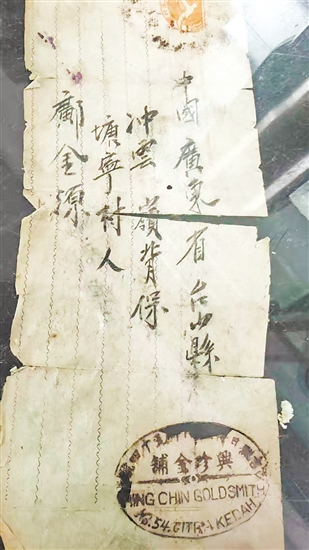 中國廣東省台山縣
冲雲·嶺背保
塘寧村人
鄺金源
興珍金鋪
HING CHIN GOLDSMITH
No. 54. KEDAH